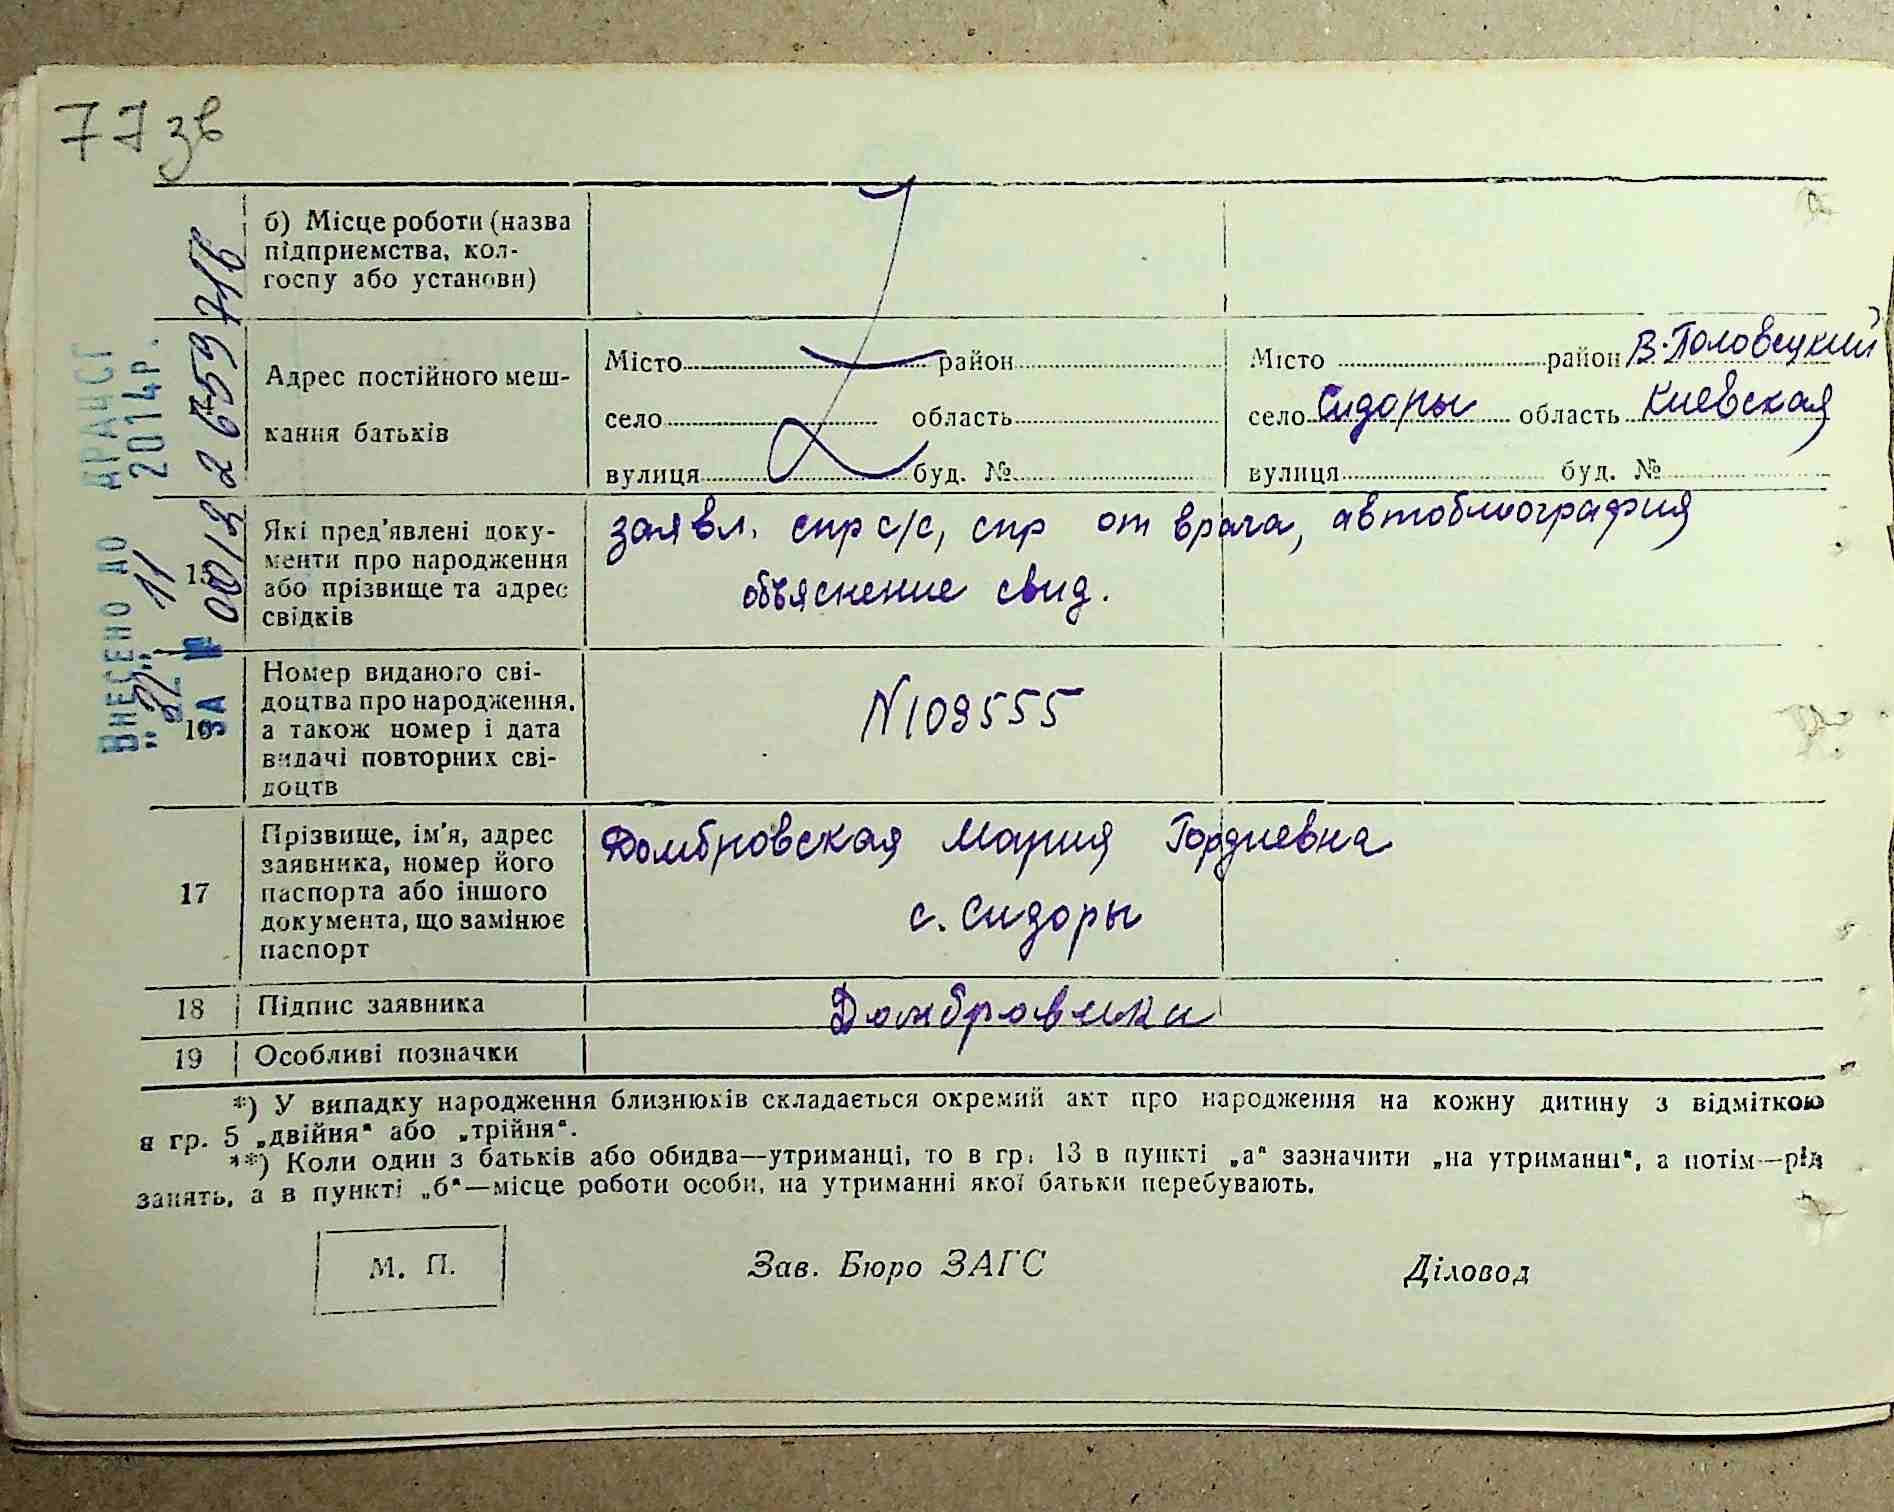 77 зв
б) Місце роботи (назва
підприємства, кол-
госпу або установи)
Адрес постійного меш-
кання батьків
Місто район
село область
вулиця буд. №
Місто район В-Половецкий
село Сидоры область Киевская
вулиця буд. №
15
Які пред'явлені доку-
менти про народження
або прізвище та адрес
свідків
заявл. спр с/с, спр от врача, автобиография
объяснение свид.
16
Номер виданого сві-
доцтва про народження,
а також номер і дата
видачі повторних сві-
доцтв
N109555
17
Прізвище, ім'я, адрес
заявника, номер його
паспорта або іншого
документа, що замінює
паспорт
Домбровская Мария Гордиевна
с. Сидоры
18 Підпис заявника
19 Особливі позначки
*) У випадку народження близнюків складається окремий акт про народження на кожну дитину з відміткою
в гр. 5 „двійня“ або „трійня“.
**) Коли один з батьків або обидва—утриманці, то в гр. 13 в пункті „а“ зазначити „на утриманні“, а потім—рід
занять, а в пункті „б“—місце роботи особи, на утриманні якої батьки перебувають.
М. П. Зав. Бюро ЗАГС Діловод
ВНЕСЕНО ДО ДРАЦСГ
11 2014р.
ЗА №